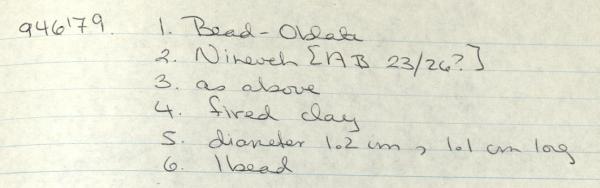 946179. 1. Bead-Oblate
2. Nineveh [AB 23/26?]
3. as above
4. fired clay
5. diameter 1.2 cm, 1.1 cm long
6. 1 bead